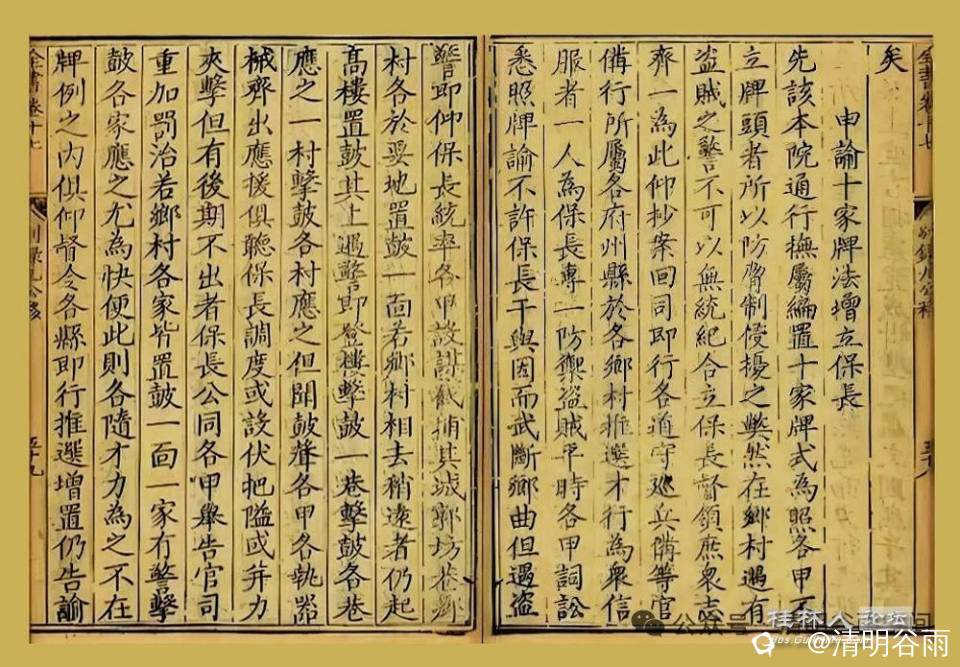 全書卷十七
矣
申諭十家牌法增立保長
先該本院通行撫屬編置十家牌式為照各甲不
立牌頭者所以防脅制侵擾之弊然在鄉村遇有
盜賊之警不可以無統紀合立保長督領庶衆志
齊一為此仰抄案回司即行各道守巡兵備等官
備行所屬各府州縣於各鄉村推選才行為衆信
服者一人為保長專一防禦盜賊平時各甲詞訟
悉照牌諭不許保長干與因而武斷鄉曲但遇盜
警即仰保長統率各甲設謀截捕其城郭坊巷鄉
村各於要地置鼓一面若鄉村相去稍遠者仍起
高樓置鼓其上遇警即登樓擊鼓一巷擊鼓各巷
應之一村擊鼓各村應之但聞鼓聲各甲各執器
械齊出應援俱聽保長調度或設伏把隘或并力
夾擊但有後期不出者保長公同各甲舉告官司
重加罰治若鄉村各家皆置鼓一面一家有警擊
鼓各家應之尤為快便此則各隨才力為之不在
牌例之內俱仰督令各縣即行推選增置仍告諭
全書卷十七
桂林人论坛
公众号
@清明谷雨